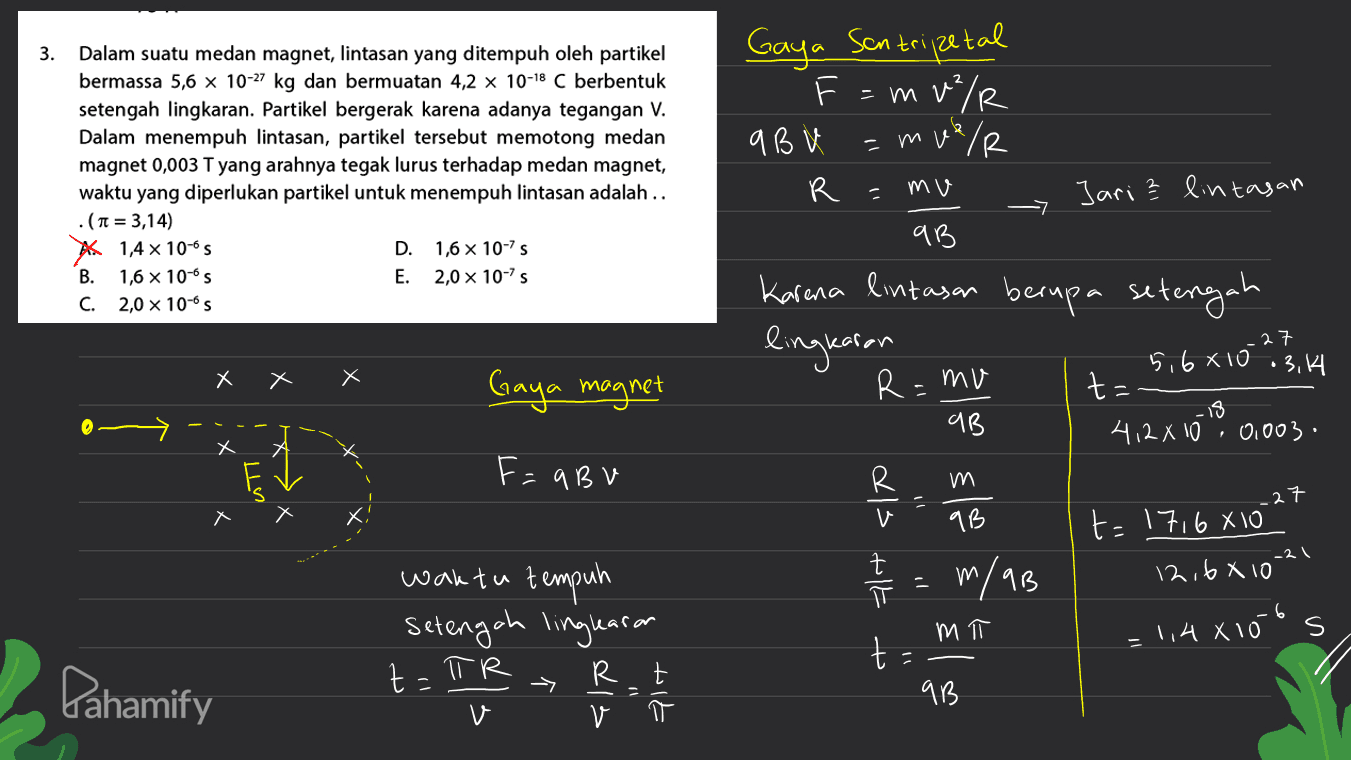 3. Dalam suatu medan magnet, lintasan yang ditempuh oleh partikel
bermassa 5,6 × 10⁻²⁷ kg dan bermuatan 4,2 × 10⁻¹⁸ C berbentuk
setengah lingkaran. Partikel bergerak karena adanya tegangan V.
Dalam menempuh lintasan, partikel tersebut memotong medan
magnet 0,003 T yang arahnya tegak lurus terhadap medan magnet,
waktu yang diperlukan partikel untuk menempuh lintasan adalah . .
. (π = 3,14)
A. 1,4 × 10⁻⁶ s
B. 1,6 × 10⁻⁶ s
C. 2,0 × 10⁻⁶ s
D. 1,6 × 10⁻⁷ s
E. 2,0 × 10⁻⁷ s
x x x
x x x
Fs
x x x
Gaya magnet
F = qBv
waktu tempuh
setengah lingkaran
t = πR/v → R/v = t/π
Gaya Sentripetal
F = m v²/R
qBv = m v²/R
R = mv/qB → Jari² lintasan
Karena lintasan berupa setengah
lingkaran
R = mv/qB
R/v = m/qB
t/π = m/qB
t = mπ/qB
t = 5,6 x 10⁻²⁷ . 3,14 / 4,2 x 10⁻¹⁸ . 0,003 .
t = 17,6 x 10⁻²⁷ / 12,6 x 10⁻²¹
= 1,4 x 10⁻⁶ s
Pahamify